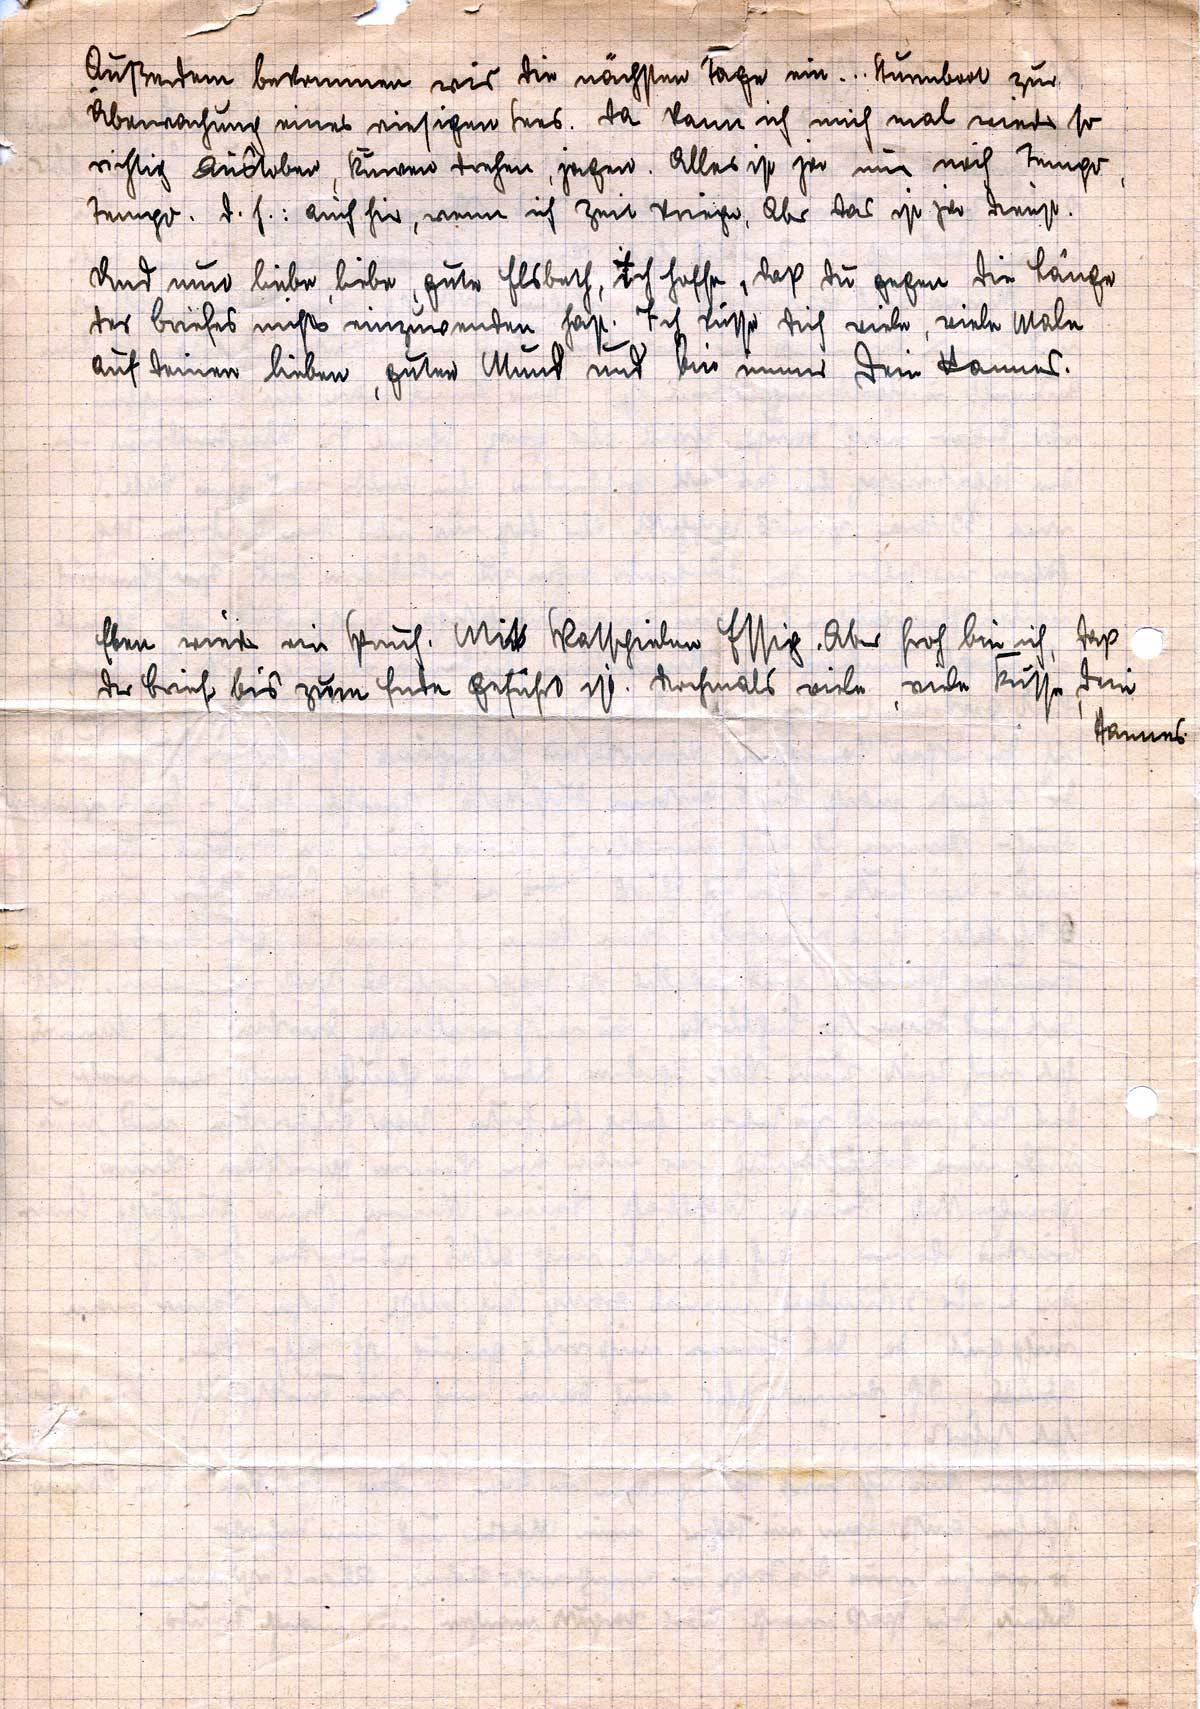 Außerdem bekommen wir die nächsten Tage ein... Sturmboot zur
Überwachung eines riesigen Sees. Da kann ich mich mal wieder so
richtig austoben, Kurven drehen, jagen. Alles ist ja nur noch Tempo,
Tempo. D. h.: auch hier, wenn ich Zeit kriege. Aber das ist ja Dienst.
Und nun liebe, liebe, gute Elsbeth, ich hoffe, daß du gegen die Länge
des Briefes nichts einzuwenden hast. Ich küsse dich viele, viele Male
auf deinen lieben, guten Mund und bin immer Dein Hannes.
Eben wieder ein Spruch. Mit Essig. Aber froh bin ich, daß
der Brief bis zum Ende geführt ist. Nochmals viele, viele Küsse, dein
Hannes